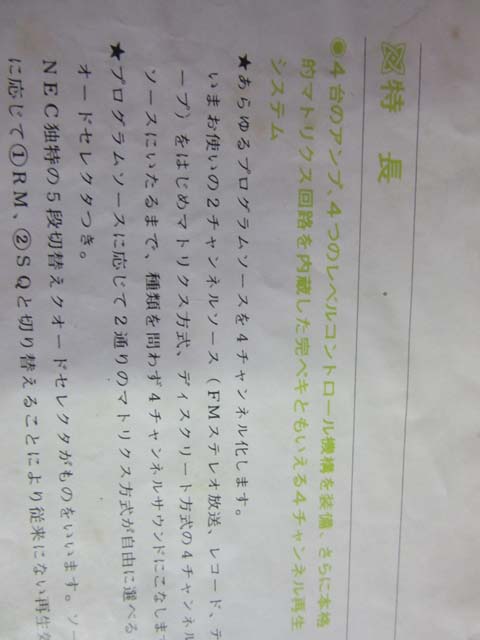 特長
◉4台のアンプ、4つのレベルコントロール機構を装備、さらに本格
的マトリクス回路を内蔵した完ペキともいえる4チャンネル再生
システム
★あらゆるプログラムソースを4チャンネル化します。
いまお使いの2チャンネルソース(FMステレオ放送、レコード、テ
ープ)をはじめマトリクス方式、ディスクリート方式の4チャンネル
ソースにいたるまで、種類を問わず4チャンネルサウンドにこなしま
★プログラムソースに応じて2通りのマトリクス方式が自由に選べる
オードセレクタつき。
NEC独特の5段切替えクオードセレクタがものをいいます。ソー
に応じて①RM、②SQと切り替えることにより従来にない再生を